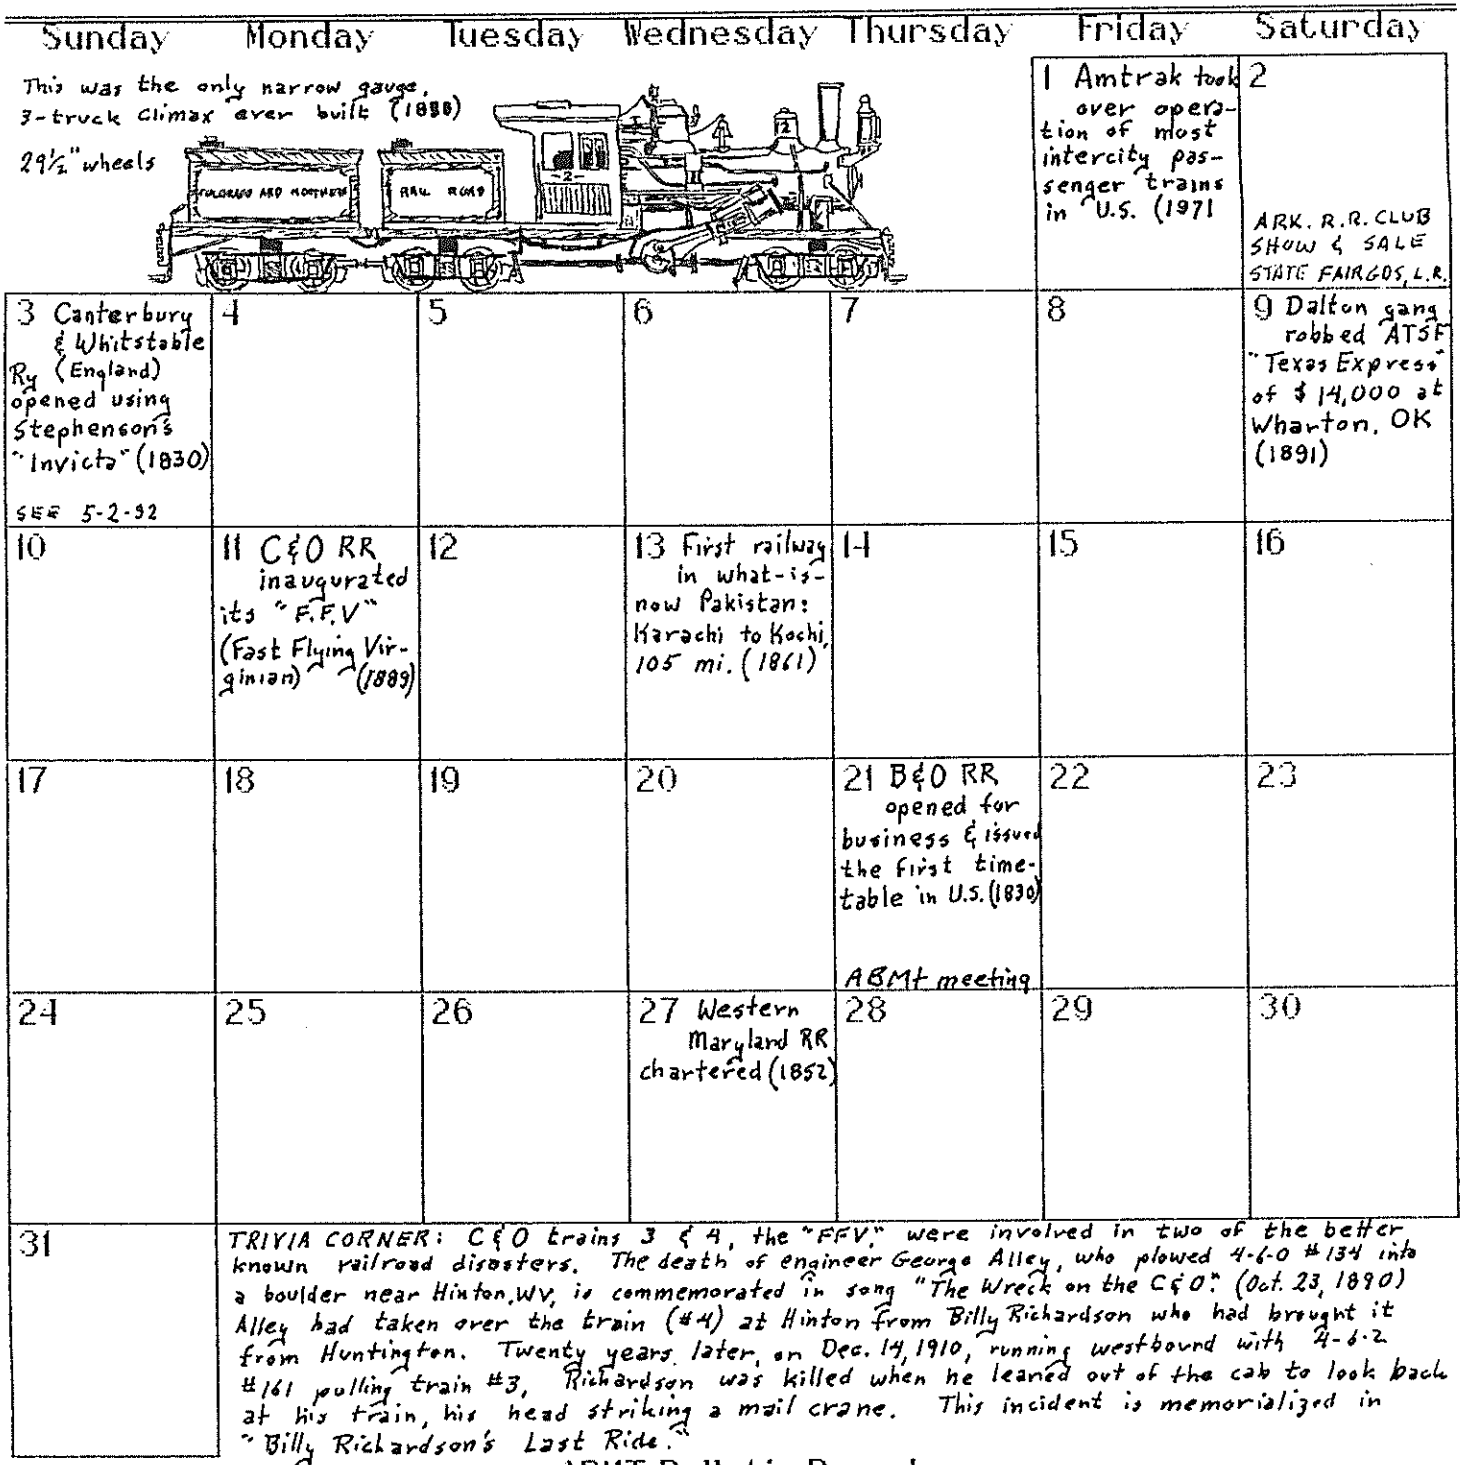 Sunday Monday Tuesday Wednesday Thursday Friday Saturday
This was the only narrow gauge,
3-truck Climax ever built (1898)
29½" wheels
COLORADO AND NORTHWESTERN
RAIL ROAD
-2-
2
1 Amtrak took
over opera-
tion of most
intercity pas-
senger trains
in U.S. (1971
2
ARK. R.R. CLUB
SHOW & SALE
STATE FAIRGDS, L.R.
3 Canterbury
& Whitstable
Ry (England)
opened using
Stephenson's
"Invicta" (1830)
SEE 5-2-92
4
5
6
7
8
9 Dalton gang
robbed ATSF
"Texas Express"
of $14,000 at
Wharton, OK
(1891)
10
11 C&O RR
inaugurated
its "F.F.V"
(Fast Flying Vir-
ginian) (1889)
12
13 First railway
in what-is-
now Pakistan:
Karachi to Kochi,
105 mi. (1861)
14
15
16
17
18
19
20
21 B&O RR
opened for
business & issued
the first time-
table in U.S. (1830)
ABMt meeting
22
23
24
25
26
27 Western
Maryland RR
chartered (1852)
28
29
30
31
TRIVIA CORNER: C&O trains 3 & 4, the "FFV," were involved in two of the better
known railroad disasters. The death of engineer George Alley, who plowed 4-6-0 #134 into
a boulder near Hinton, WV, is commemorated in song "The Wreck on the C&O." (Oct. 23, 1890)
Alley had taken over the train (#4) at Hinton from Billy Richardson who had brought it
from Huntington. Twenty years later, on Dec. 14, 1910, running westbound with 4-6-2
#161 pulling train #3, Richardson was killed when he leaned out of the cab to look back
at his train, his head striking a mail crane. This incident is memorialized in
"Billy Richardson's Last Ride."